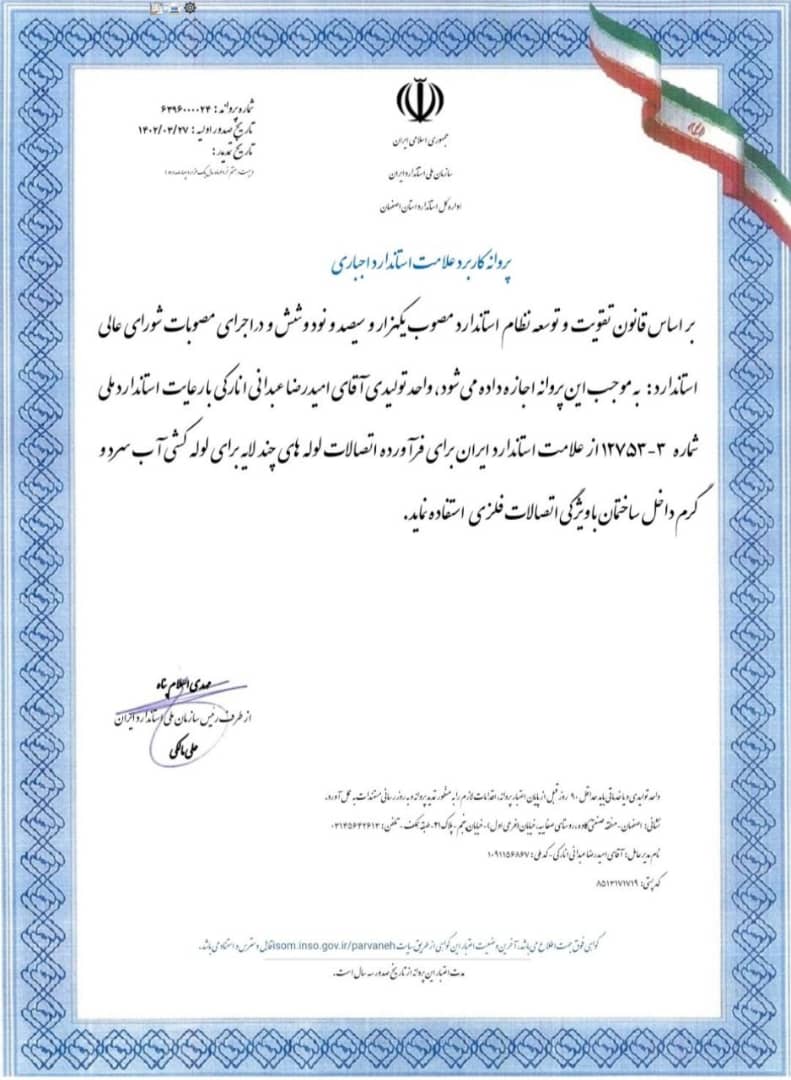 شماره پروانه: ۶۳۹۶۰۰۰۰۲۴
تاریخ صدور اولیه: ۱۴۰۲/۰۳/۲۷
تاریخ تمدید:
جمهوری اسلامی ایران
سازمان ملی استاندارد ایران
اداره کل استاندارد استان اصفهان
پروانه کاربرد علامت استاندارد اجباری
بر اساس قانون تقویت و توسعه نظام استاندارد مصوب یکهزار و سیصد و نود و شش و در اجرای مصوبات شورای عالی
استاندارد: به موجب این پروانه اجازه داده می شود، واحد تولیدی آقای امیدرضا عبدانی انارکی با رعایت استاندارد ملی
شماره ۳-۱۲۷۵۳ از علامت استاندارد ایران برای فرآورده اتصالات لوله های چند لایه برای لوله کشی آب سرد و
گرم داخل ساختمان با ویژگی اتصالات فلزی استفاده نماید.
مهدی اسلام پناه
از طرف رئیس سازمان ملی استاندارد ایران
علی مالکی
واحد تولیدی و یا خدماتی باید حداقل ۹۰ روز قبل از پایان اعتبار پروانه، اقدامات لازم را به منظور تمدید پروانه و به روز رسانی مستندات به عمل آورد.
نشانی: اصفهان - منطقه صنعتی، روستای صفاییه، خیابان (فرعی اول)، خیابان پنجم - پلاک ۴۱- طبقه همکف - تلفن: ۰۳۱۳۵۶۳۲۶۱۳
نام مدیرعامل: آقای امیدرضا عبدانی انارکی - کد ملی: ۱۰۹۱۱۵۶۸۶۷
کد پستی: ۸۵۱۳۱۷۱۷۱۹
گواهی فوق جهت اطلاع می باشد، آخرین وضعیت اعتبار این گواهی از طریق سایت isom.inso.gov.ir/parvaneh قابل دسترس و استناد می باشد.
مدت اعتبار این پروانه از تاریخ صدور سه سال است.